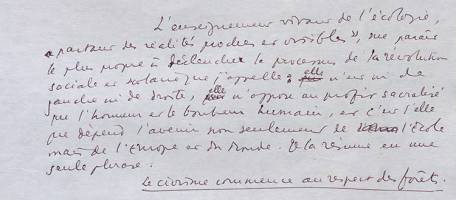 L'enseignement vivant de l'écologie,
"partant des réalités proches et visibles", me paraît
le plus propre à déclencher le processus de la révolution
sociale et                que j'appelle ; elle n'est ni de
gauche ni de droite, elle n'oppose au profit sacralisé
que l'homme et le bonheur humain, et c'est d'elle
que dépend l'avenir non seulement de l'École
mais de l'Europe et du Monde. Je la résume en une
seule phrase :
Le civisme commence au respect des forêts.